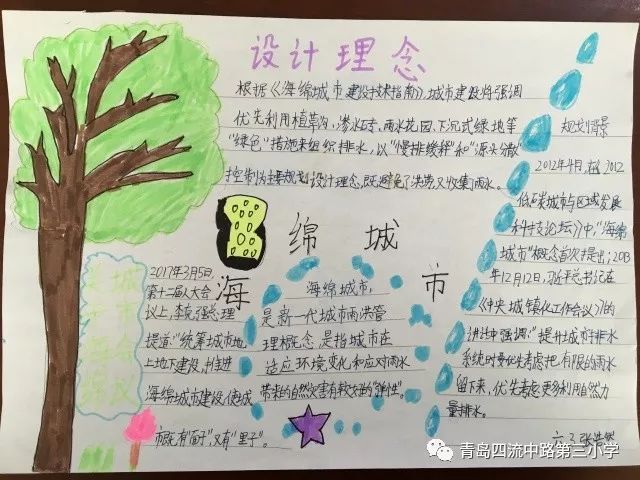 设计理念
根据《海绵城市建设技术指南》,城市建设将强调
优先利用植草沟,渗水砖,雨水花园,下沉式绿地等
"绿色"措施来组织排水,以"慢排缓释"和"源头分散"
控制为主要规划设计理念,既避免了洪涝又收集了雨水。
海
绵
城
市
2017年3月5日,
第十二届人大会
议上,李克强总理
提道:"统筹城市地
上地下建设,
海绵城市建设,使城
市既有"面子",又有"里子"。
海绵城市,
是新一代城市雨洪管
理概念,是指城市在
适应环境变化和应对雨水
带来的自然灾害有较好的"弹性"。
规划情景
2012年4月,在2012
低碳城市与区域发展
科技论坛》中,"海绵
城市"概念首次提出;2013
年12月12日,习近平总书记在
《中央城镇化工作会议》的
讲话中强调:"提升城市排水
系统时要优先考虑把有限的雨水
留下来,优先考虑更多利用自然力
量排水。
青岛四流中路第三小学